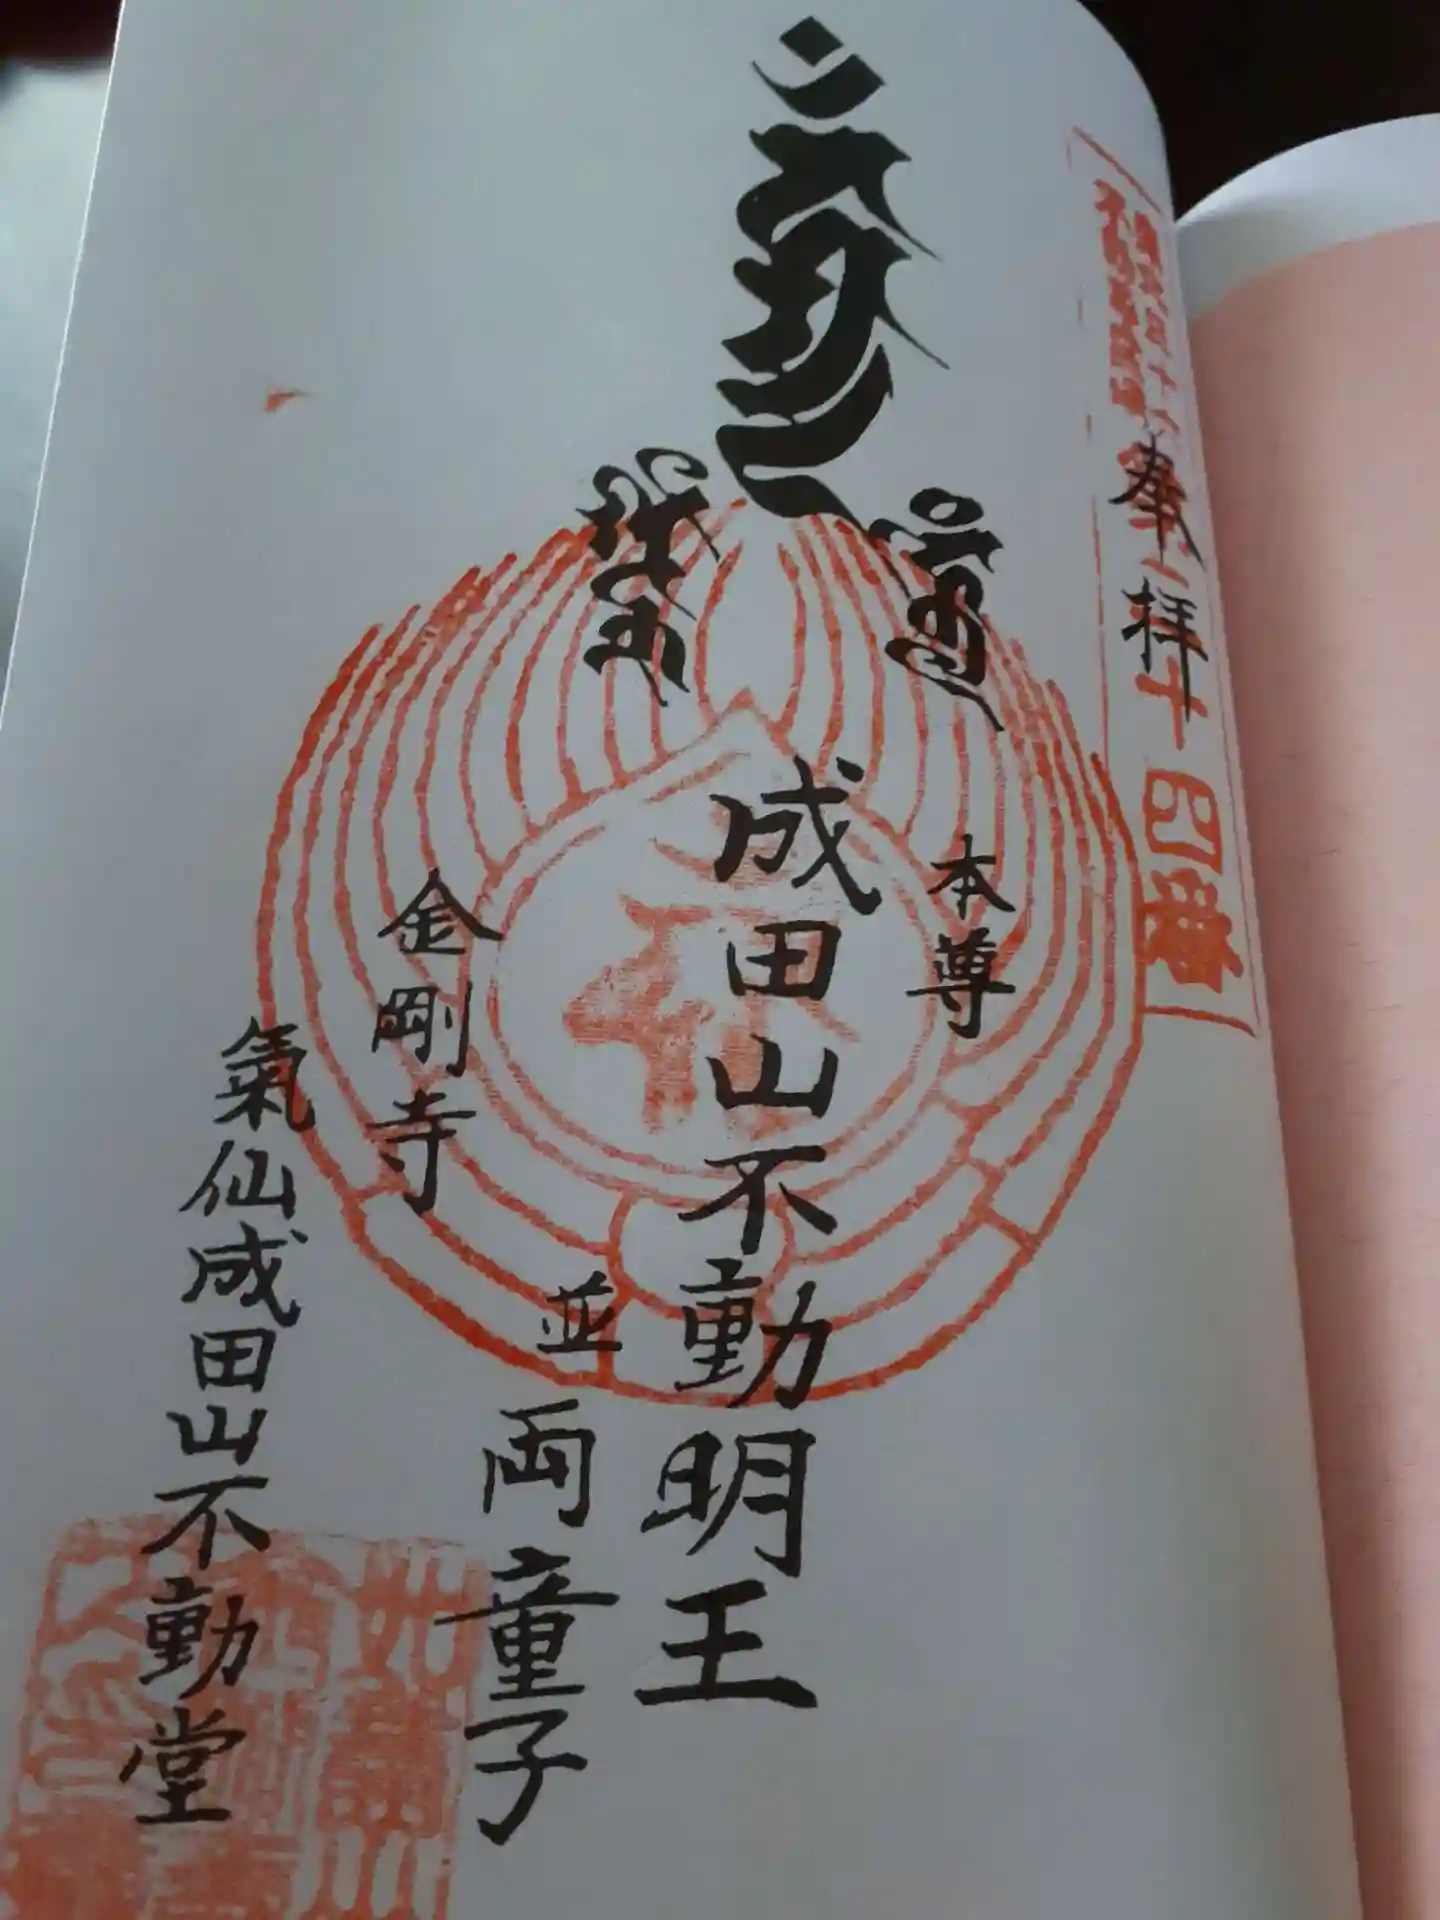 十四番
奉拝
本尊
成田山不動明王
並両童子
金剛寺
氣仙成田山不動堂